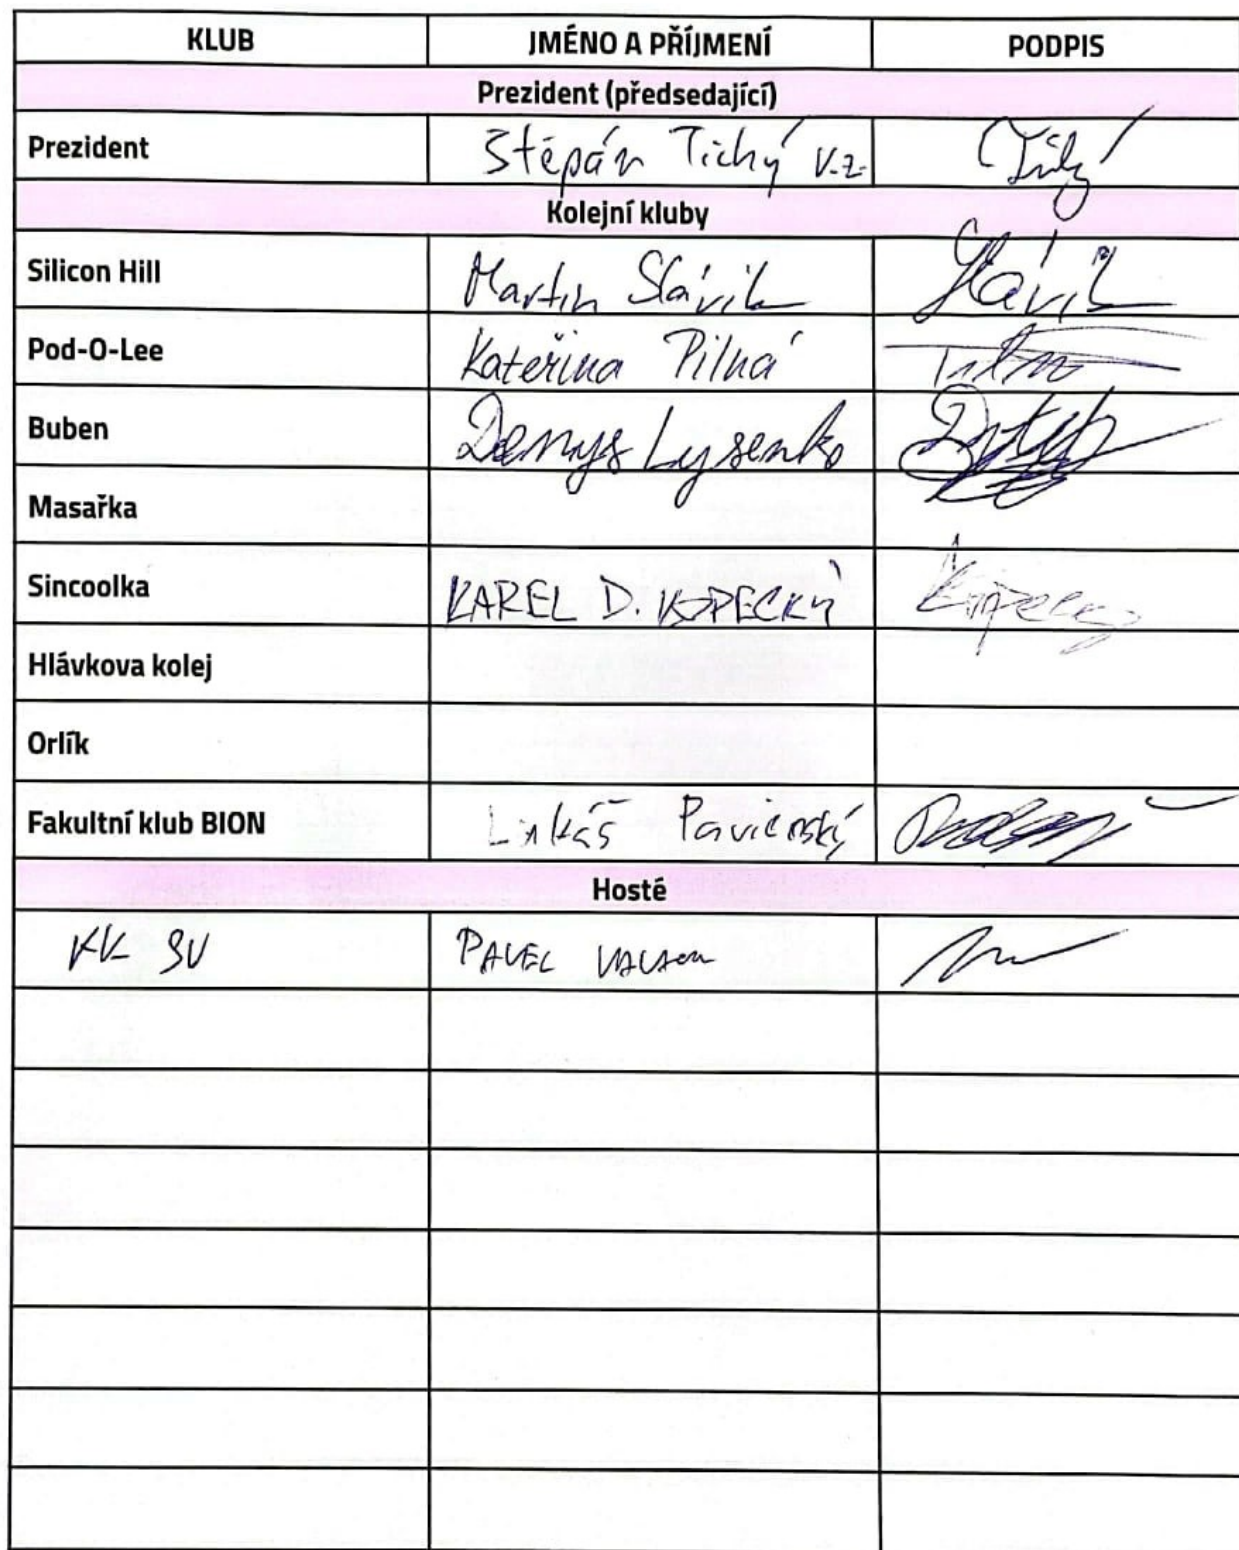 KLUB JMÉNO A PŘÍJMENÍ PODPIS
Prezident (předsedající)
Prezident Štěpán Tichý v.z. Tichý
Kolejní kluby
Silicon Hill Martin Slávik Slávik
Pod-O-Lee Kateřina Pilná
Buben Denys Lysenko
Masařka
Sincoolka KAREL D. KOPECKÝ Kopecký
Hlávkova kolej
Orlík
Fakultní klub BION Lukáš
Hosté
KK SU PAVEL